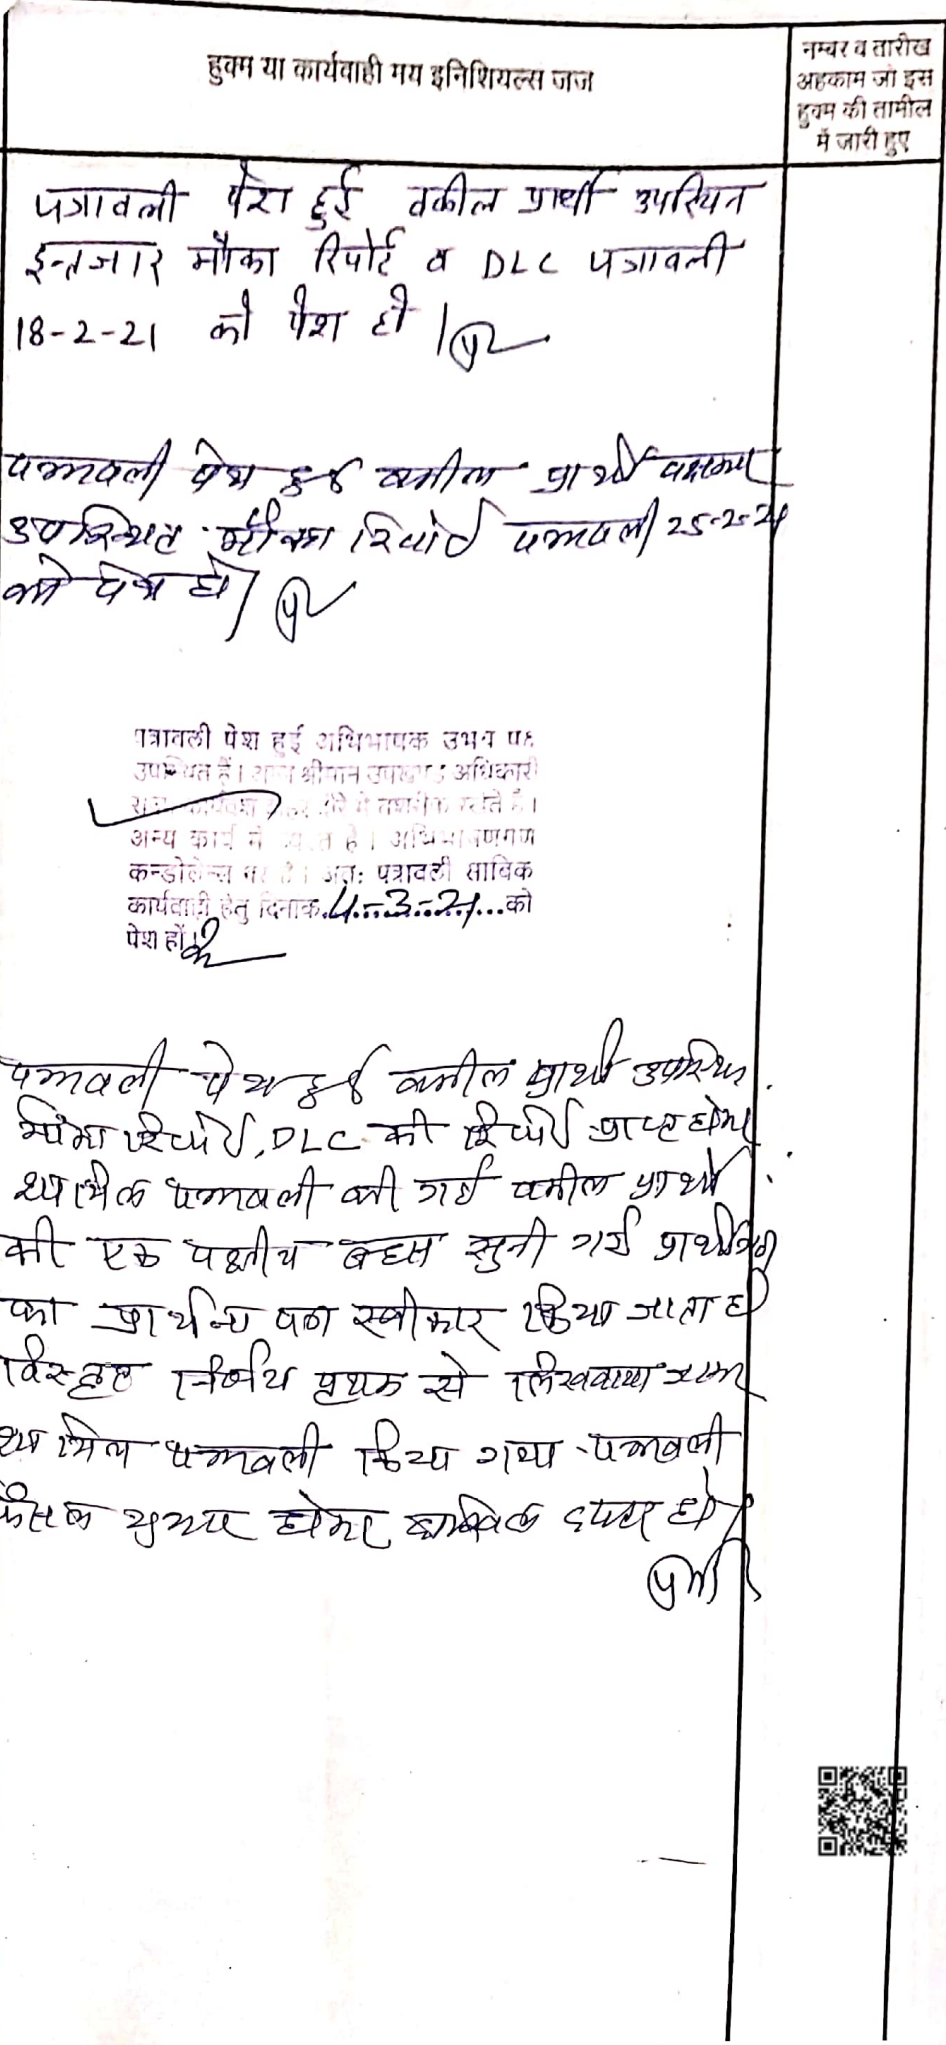 हुक्म या कार्यवाही मय इनिशियल्स जज
नम्बर व तारीख
अहकाम जो इस
हुक्म की तामील
में जारी हुए
पत्रावली पेश हुई वकील प्रार्थी उपस्थित
इन्तजार मौका रिपोर्ट व DLC पत्रावली
18-2-21 को पेश हो।
पत्रावली पेश हुई वकील प्रार्थी
उपस्थित मौका रिपोर्ट पत्रावली 25-2-21
को पेश हो।
पत्रावली पेश हुई अभिभाषक उभय पक्ष
उपस्थित हैं। श्रीमान उपखण्ड अधिकारी
अन्य कार्य में व्यस्त है। अभिभाषणगण
कन्डोलेन्स पर है। अतः पत्रावली साबिक
कार्यवाही हेतु दिनांक 4-3-21 को
पेश हों।
पत्रावली पेश हुई वकील प्रार्थी उपस्थित
रिपोर्ट, DLC की रिपोर्ट प्राप्त होकर
शामिल पत्रावली की गई वकील प्रार्थी
की एक पक्षीय बहस सुनी गई
का प्रार्थना पत्र स्वीकार किया जाता है
विस्तृत निर्णय पृथक से लिखवाया जाकर
शामिल पत्रावली किया गया पत्रावली
फैसल शुमार होकर दाखिल दफ्तर हो।